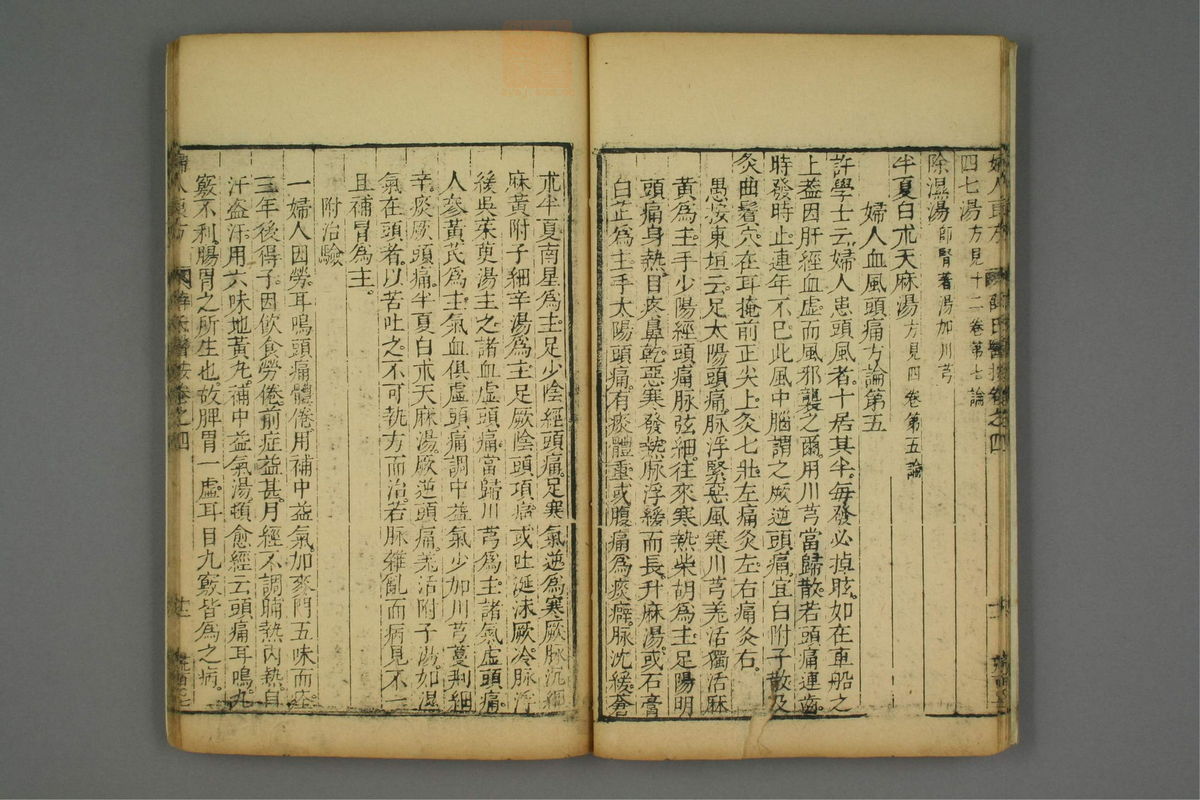 四七湯方見十二卷第七論
除濕湯即腎著湯加川芎
半夏白朮天麻湯方見四卷第五論
婦人血風頭痛方論第五
許學士云婦人患頭風者十居其半每發必掉眩如在車船之
上蓋因肝經血虛而風邪襲之爾用川芎當歸散若頭痛連齒
時發時止連年不已此風中腦謂之厥逆頭痛宜白附子散及
灸曲鬢穴在耳掩前正尖上灸七壯左痛灸左右痛灸右
愚按東垣云足太陽頭痛脉浮緊惡風寒川芎羌活獨活麻
黃為主手少陽經頭痛脉弦細往來寒熱柴胡為主足陽明
頭痛身熱目疼鼻乾惡寒發熱脉浮緩而長升麻湯或石膏
白芷為主手太陽頭痛有痰體重或腹痛為痰癖脉沈緩蒼
朮半夏南星為主足少陰經頭痛足寒氣逆為寒厥脉沉細
麻黃附子細辛湯為主足厥陰頭項痛或吐涎沫厥冷脉浮
後吳茱萸湯主之諸血虛頭痛當歸川芎為主諸氣虛頭痛
人參黃芪為主氣血俱虛頭痛調中益氣少加川芎蔓荆細
辛痰厥頭痛半夏白朮天麻湯厥逆頭痛羌活附子湯如濕
氣在頭者以苦吐之不可執方而治若脉雜亂而病見不一
且補胃為主
附治驗
一婦人因勞耳鳴頭痛體倦用補中益氣加麥門五味而痊
三年後得子因飲食勞倦前症益甚月經不調晡熱內熱自
汗盜汗用六味地黃丸補中益氣湯頓愈經云頭痛耳鳴九
竅不利腸胃之所生也故脾胃一虛耳目九竅皆為之病